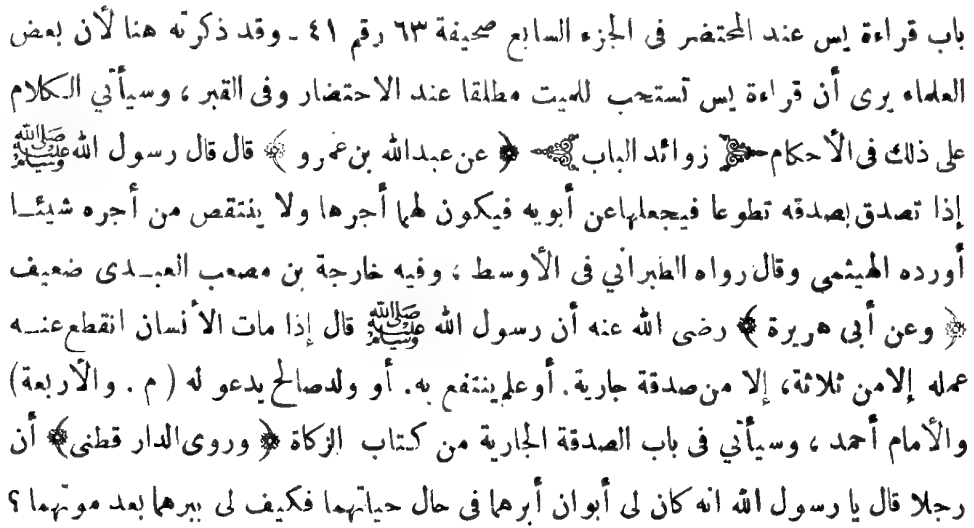 باب قراءة يس عند المحتضر فى الجزء السابع صحيفة ٦٣ رقم ٤١ ـ وقد ذكرته هنا لأن بعض
العلماء يرى أن قراءة يس تستحب للميت مطلقا عند الاحتضار وفى القبر ، وسيأتي الكلام
على ذلك فى الأحكام ﴿ زوائد الباب ﴾ ﴿ عن عبدالله بن عمرو ﴾ قال قال رسول الله ﷺ
إذا تصدق بصدقه تطوعا فيجعلها عن أبويه فيكون لهما أجرها ولا ينتقص من أجره شيئـا
أورده الهيثمى وقال رواه الطبرانى فى الأوسط ، وفيه خارجة بن مصعب العبـدى ضعيف
﴿ وعن أبى هريرة ﴾ رضى الله عنه أن رسول الله ﷺ قال إذا مات الأنسان انقطع عنـه
عمله إلا من ثلاثة، إلا من صدقة جارية. أو علم ينتفع به. أو ولد صالح يدعو له ( م . والأربعة)
والأمام أحمد ، وسيأتي فى باب الصدقة الجارية من كتاب الزكاة ﴿ وروى الدار قطنى ﴾ أن
رجلا قال يا رسول الله انه كان لى أبوان أبرهما فى حال حياتهما فكيف لى ببرهما بعد موتهما ؟